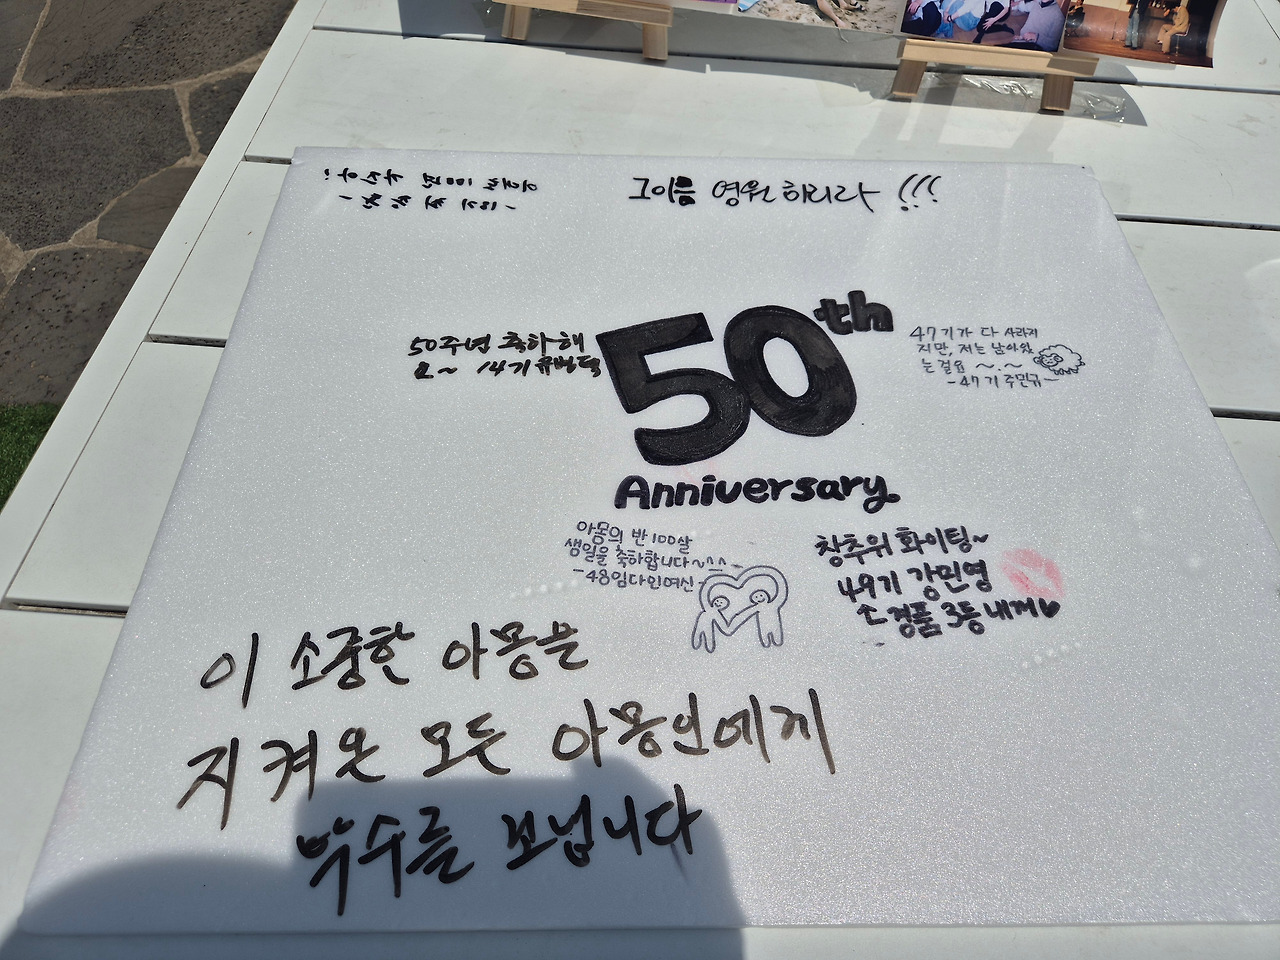 그이름 영원하리라 !!!
50th
Anniversary
50주년 축하해
요~ 14기
47기가 다 사라지
지만, 저는 남아있
는걸요 ~.~
-47기 주민규-
아몽의 반 100살
생일을 축하합니다~^^
-48임다인여신-
창추위 화이팅~
49기 강민영
경품 3등 내꺼♥
이 소중한 아몽을
지켜온 모든 아몽인에게
박수를 보냅니다